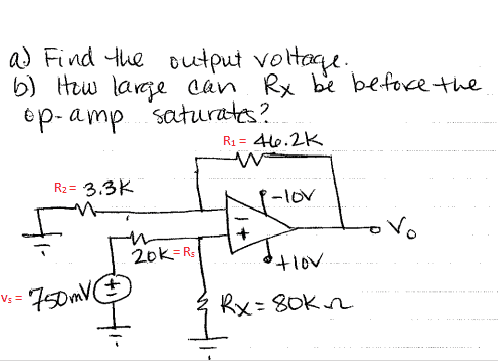 a) Find the output voltage.
b) How large can Rx be before the
op-amp saturates?
R₁ = 46.2K
R₂ = 3.3K
-10V
-
+
Vo
20K = Rs
+10V
Vs = 750mV
+
-
Rx = 80KΩ